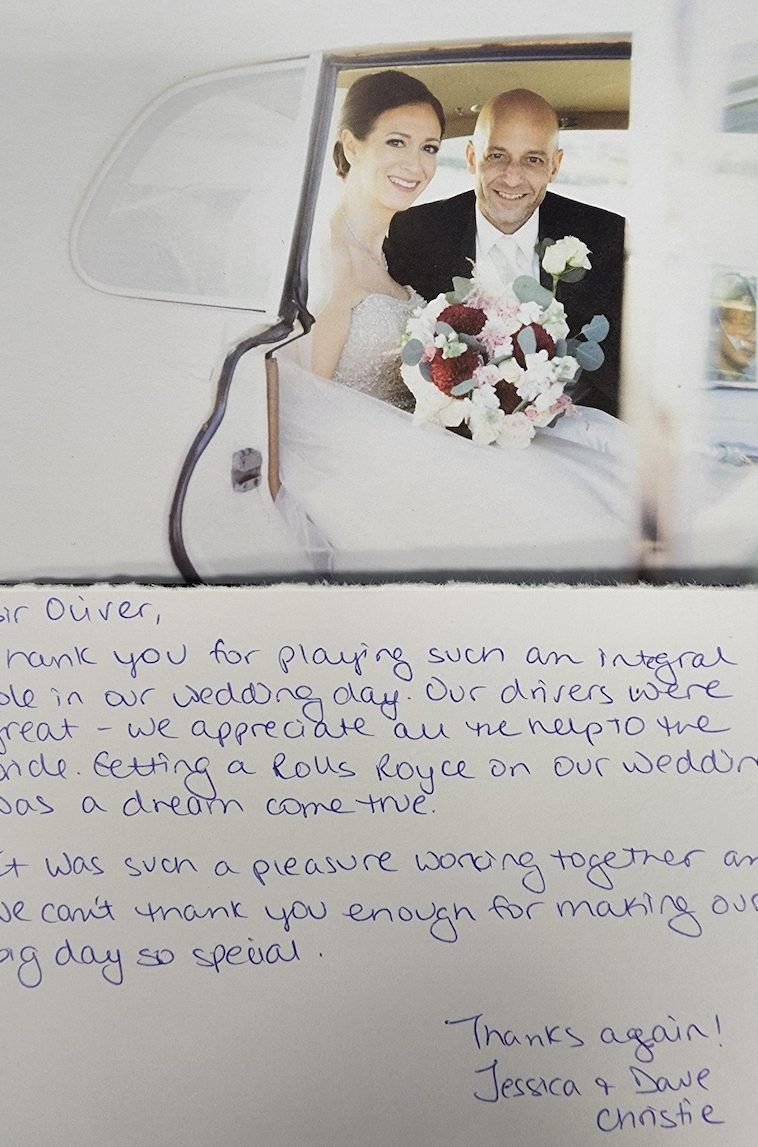 Sir Oliver,
Thank you for playing such an integral
role in our wedding day. Our drivers were
great - we appreciate all the help to the
bride. Getting a Rolls Royce on our wedding
was a dream come true.
It was such a pleasure working together and
we can't thank you enough for making our
big day so special.
Thanks again!
Jessica & Dave
Christie